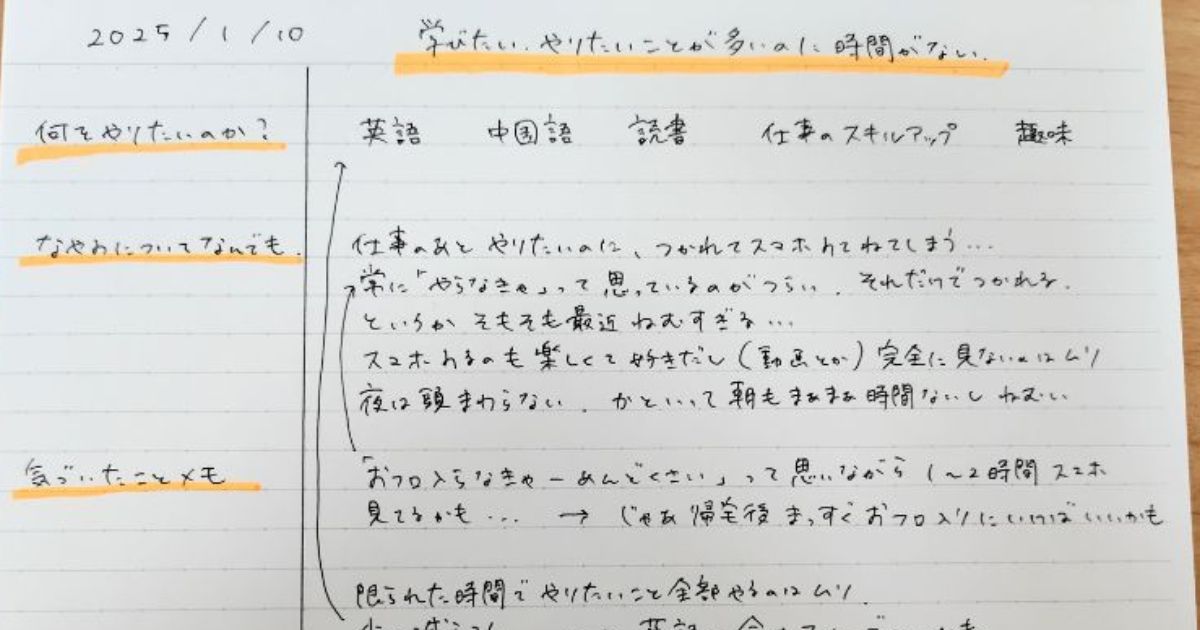 2025/1/10
学びたい、やりたいことが多いのに時間がない。
何をやりたいのか？
英語 中国語 読書 仕事のスキルアップ 趣味
なやみについてなんでも。
仕事のあと やりたいのに、つかれてスマホみてねてしまう…
常に「やらなきゃ」って思っているのがつらい。それだけでつかれる。
というか そもそも最近ねむすぎる…
スマホみるのも楽しくて好きだし（動画とか）完全に見ないのはムリ
夜は頭まわらない。かといって朝もまぁまぁ時間ないし ねむい
気づいたことメモ
「おフロ入らなきゃーめんどくさい」って思いながら 1〜2時間 スマホ
見てるかも… → じゃあ帰宅後まっすぐおフロ入りにいけばいいかも
限られた時間でやりたいこと全部やるのはムリ。
英語